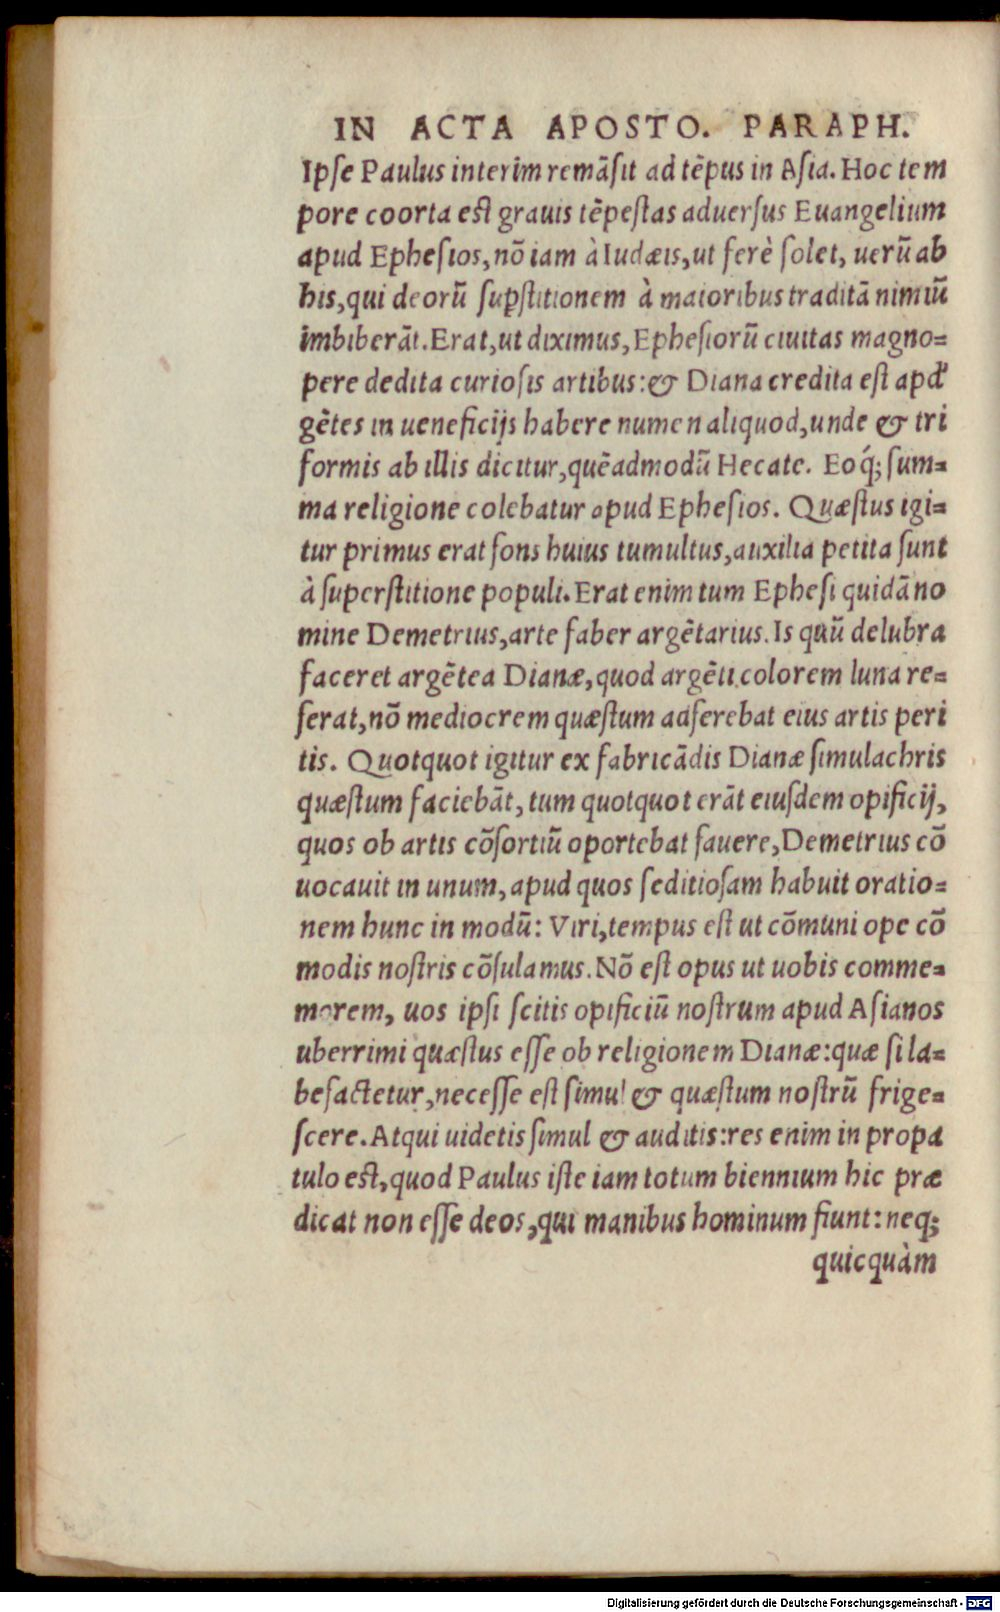 IN ACTA APOSTO. PARAPH.
Ipſe Paulus interim remãſit ad tẽpus in Aſia. Hoc tem
pore coorta eſt grauis tẽpeſtas aduerſus Euangelium
apud Epheſios, nõ iam à Iudæis, ut ferè ſolet, uerũ ab
his, qui deorũ ſuꝑſtitionem à maioribus traditã nimiũ
imbiberãt. Erat, ut diximus, Epheſiorũ ciuitas magno=
pere dedita curioſis artibus: & Diana credita eſt apđ
gẽtes in ueneficijs habere numen aliquod, unde & tri
formis ab illis dicitur, quẽadmodũ Hecate. Eoq́; ſum=
ma religione colebatur apud Epheſios. Quæſtus igi=
tur primus erat fons huius tumultus, auxilia petita ſunt
à ſuperſtitione populi. Erat enim tum Epheſi quidã no
mine Demetrius, arte faber argẽtarius. Is quũ delubra
faceret argẽtea Dianæ, quod argẽti colorem luna re=
ferat, nõ mediocrem quæſtum adferebat eius artis peri
tis. Quotquot igitur ex fabricãdis Dianæ ſimulachris
quæſtum faciebãt, tum quotquot erãt eiuſdem opificij,
quos ob artis cõſortiũ oportebat fauere, Demetrius cõ
uocauit in unum, apud quos ſeditioſam habuit oratio=
nem hunc in modũ: Viri, tempus eſt ut cõmuni ope cõ
modis noſtris cõſulamus. Nõ eſt opus ut uobis comme=
morem, uos ipſi ſcitis opificiũ noſtrum apud Aſianos
uberrimi quæſtus eſſe ob religionem Dianæ: quæ ſi la=
befactetur, neceſſe eſt ſimul & quæſtum noſtrũ frige=
ſcere. Atqui uidetis ſimul & auditis: res enim in propa
tulo eſt, quod Paulus iſte iam totum biennium hic præ
dicat non eſſe deos, qui manibus hominum fiunt: neq;
quicquàm
Digitalisierung gefördert durch die Deutsche Forschungsgemeinschaft - DFG